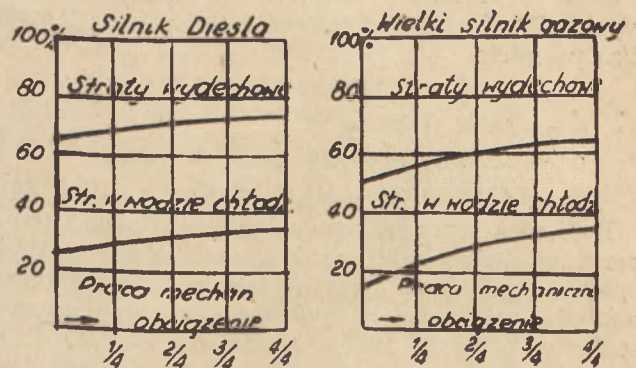 Silnik Diesla
100%
80
60
40
20
Straty wydechowe
Str. w wodzie chłodz.
Praca mechan
→ obciążenie
1/4 2/4 3/4 4/4
Wielki silnik gazowy
100%
80
60
40
20
Straty wydechowe
Str. w wodzie chłodz
Praca mechaniczna
→ obciążenie
1/4 2/4 3/4 4/4